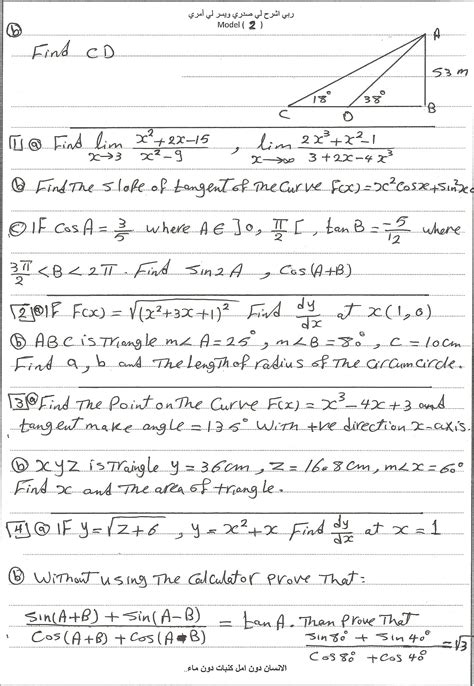 ربي اشرح لي صدري ويسر لي أمري
Model ( 2 )
(b)
Find CD
A
53 m
18°
38°
C
D
B
[1] (a) Find lim x→3 (x²+2x-15)/(x²-9) , lim x→∞ (2x³+x²-1)/(3+2x-4x³)
(b) Find The slope of tangent of The curve F(x)=x²cosx+sin²x
(c) IF cos A = 3/5 where A∈]0, π/2[ , tan B = -5/12 where
3π/2 < B < 2π . Find sin 2A , cos(A+B)
[2] (a) IF F(x) = √(x²+3x+1)² Find dy/dx at x(1,0)
(b) ABC is Triangle m∠A=25°, m∠B=80°, c = 10cm
Find a, b and The length of radius of The circumcircle.
[3] (a) Find The Point on The Curve F(x) = x³-4x+3 and
tangent make angle = 135° with +ve direction x-axis.
(b) XYZ is Traingle y=36cm, z=16.8cm, m∠x=60°
Find x and The area of triangle.
[4] (a) IF y=√z+6 , y = x²+x Find dy/dx at x=1
(b) Without using The calculator prove That:
(sin(A+B) + sin(A-B))/(cos(A+B) + cos(A-B)) = tan A. Than Prove That
(sin 80° + sin 40°)/(cos 80° + cos 40°) = √3
الانسان دون امل كنبات دون ماء.